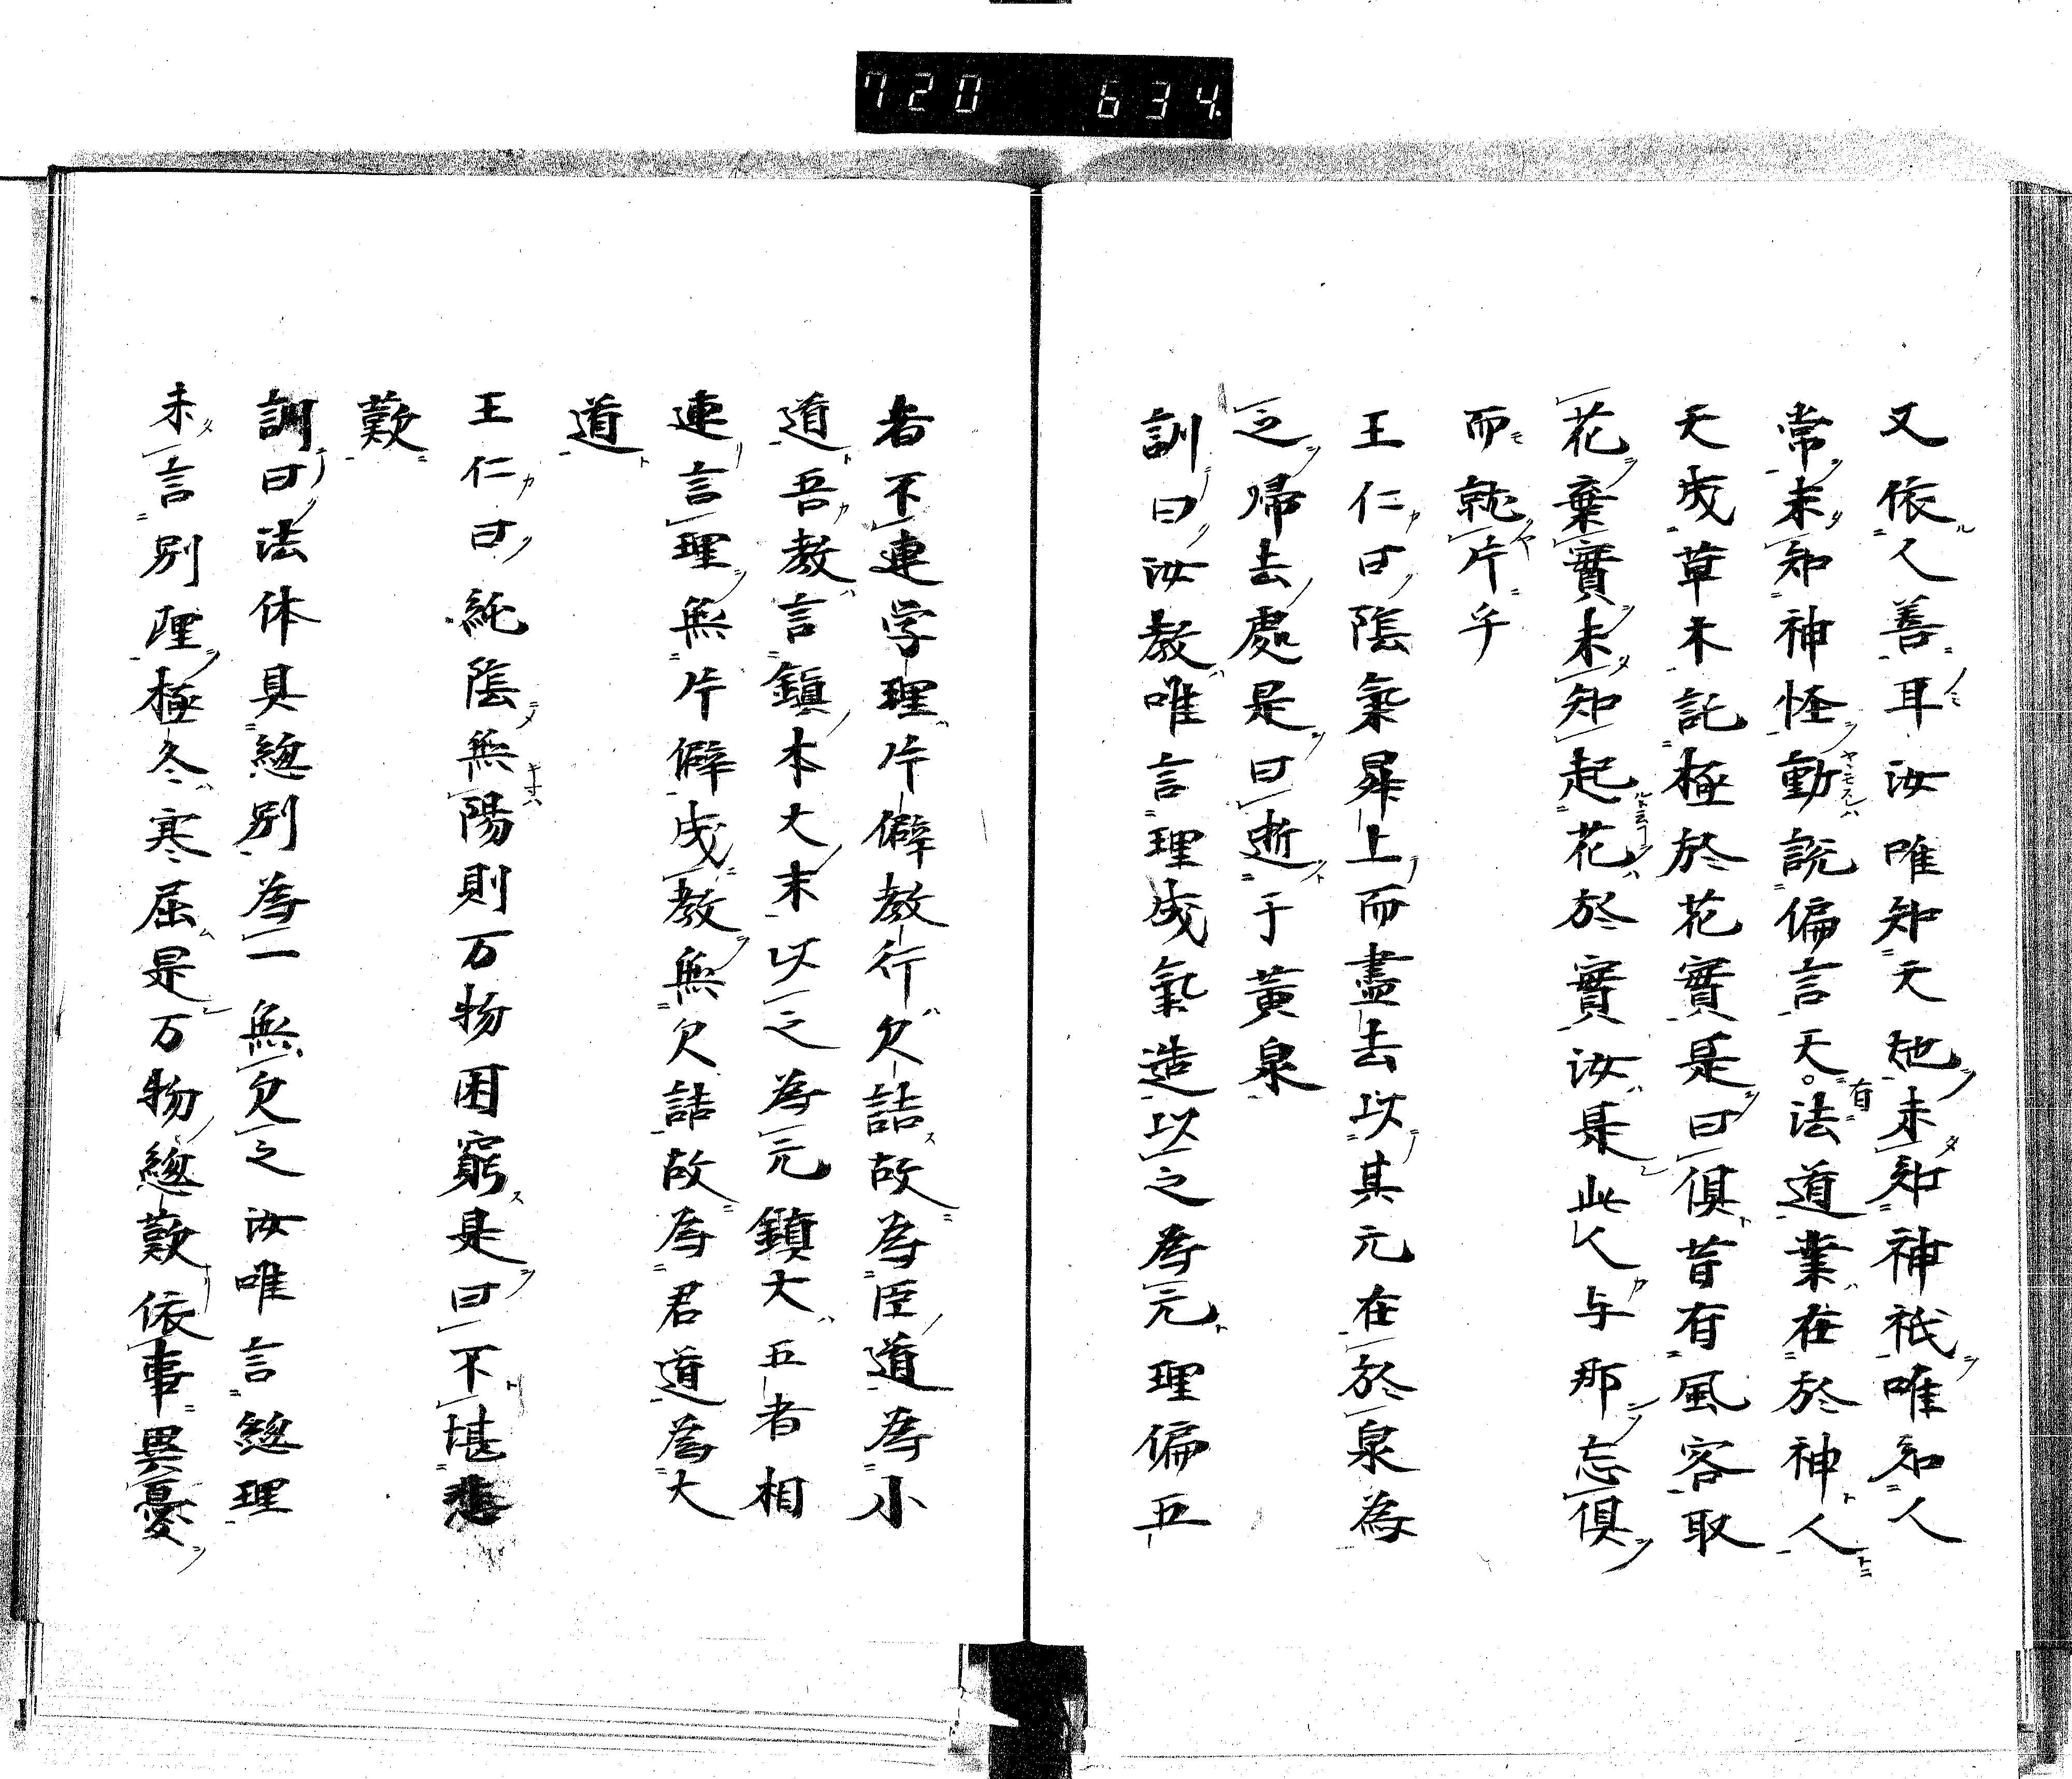 720 634
又依人善耳汝唯知天地未知神祇唯知人
常未知神怪動説偏言天有法道業在於神人
天成草木託極於花實是曰俱昔有風客取
花棄實未知起花於實汝是此人与那忘俱
而就片乎
王仁曰陰氣昇上而盡去以其元在於泉為
之歸去處是曰逝于黄泉
訓曰汝教唯言理成氣造以之為元理偏五
者不連学理片僻教行欠詰故為臣道為小
道吾教言鎮本大末以之為元鎮大五者相
連言理無片僻成教無欠詰故為君道為大
道
王仁曰純陰無陽則万物困窮是曰不堪悲
歎
訓曰法体具總別為一無欠之汝唯言總理
未言別理極冬寒屈是万物總歎依事異憂